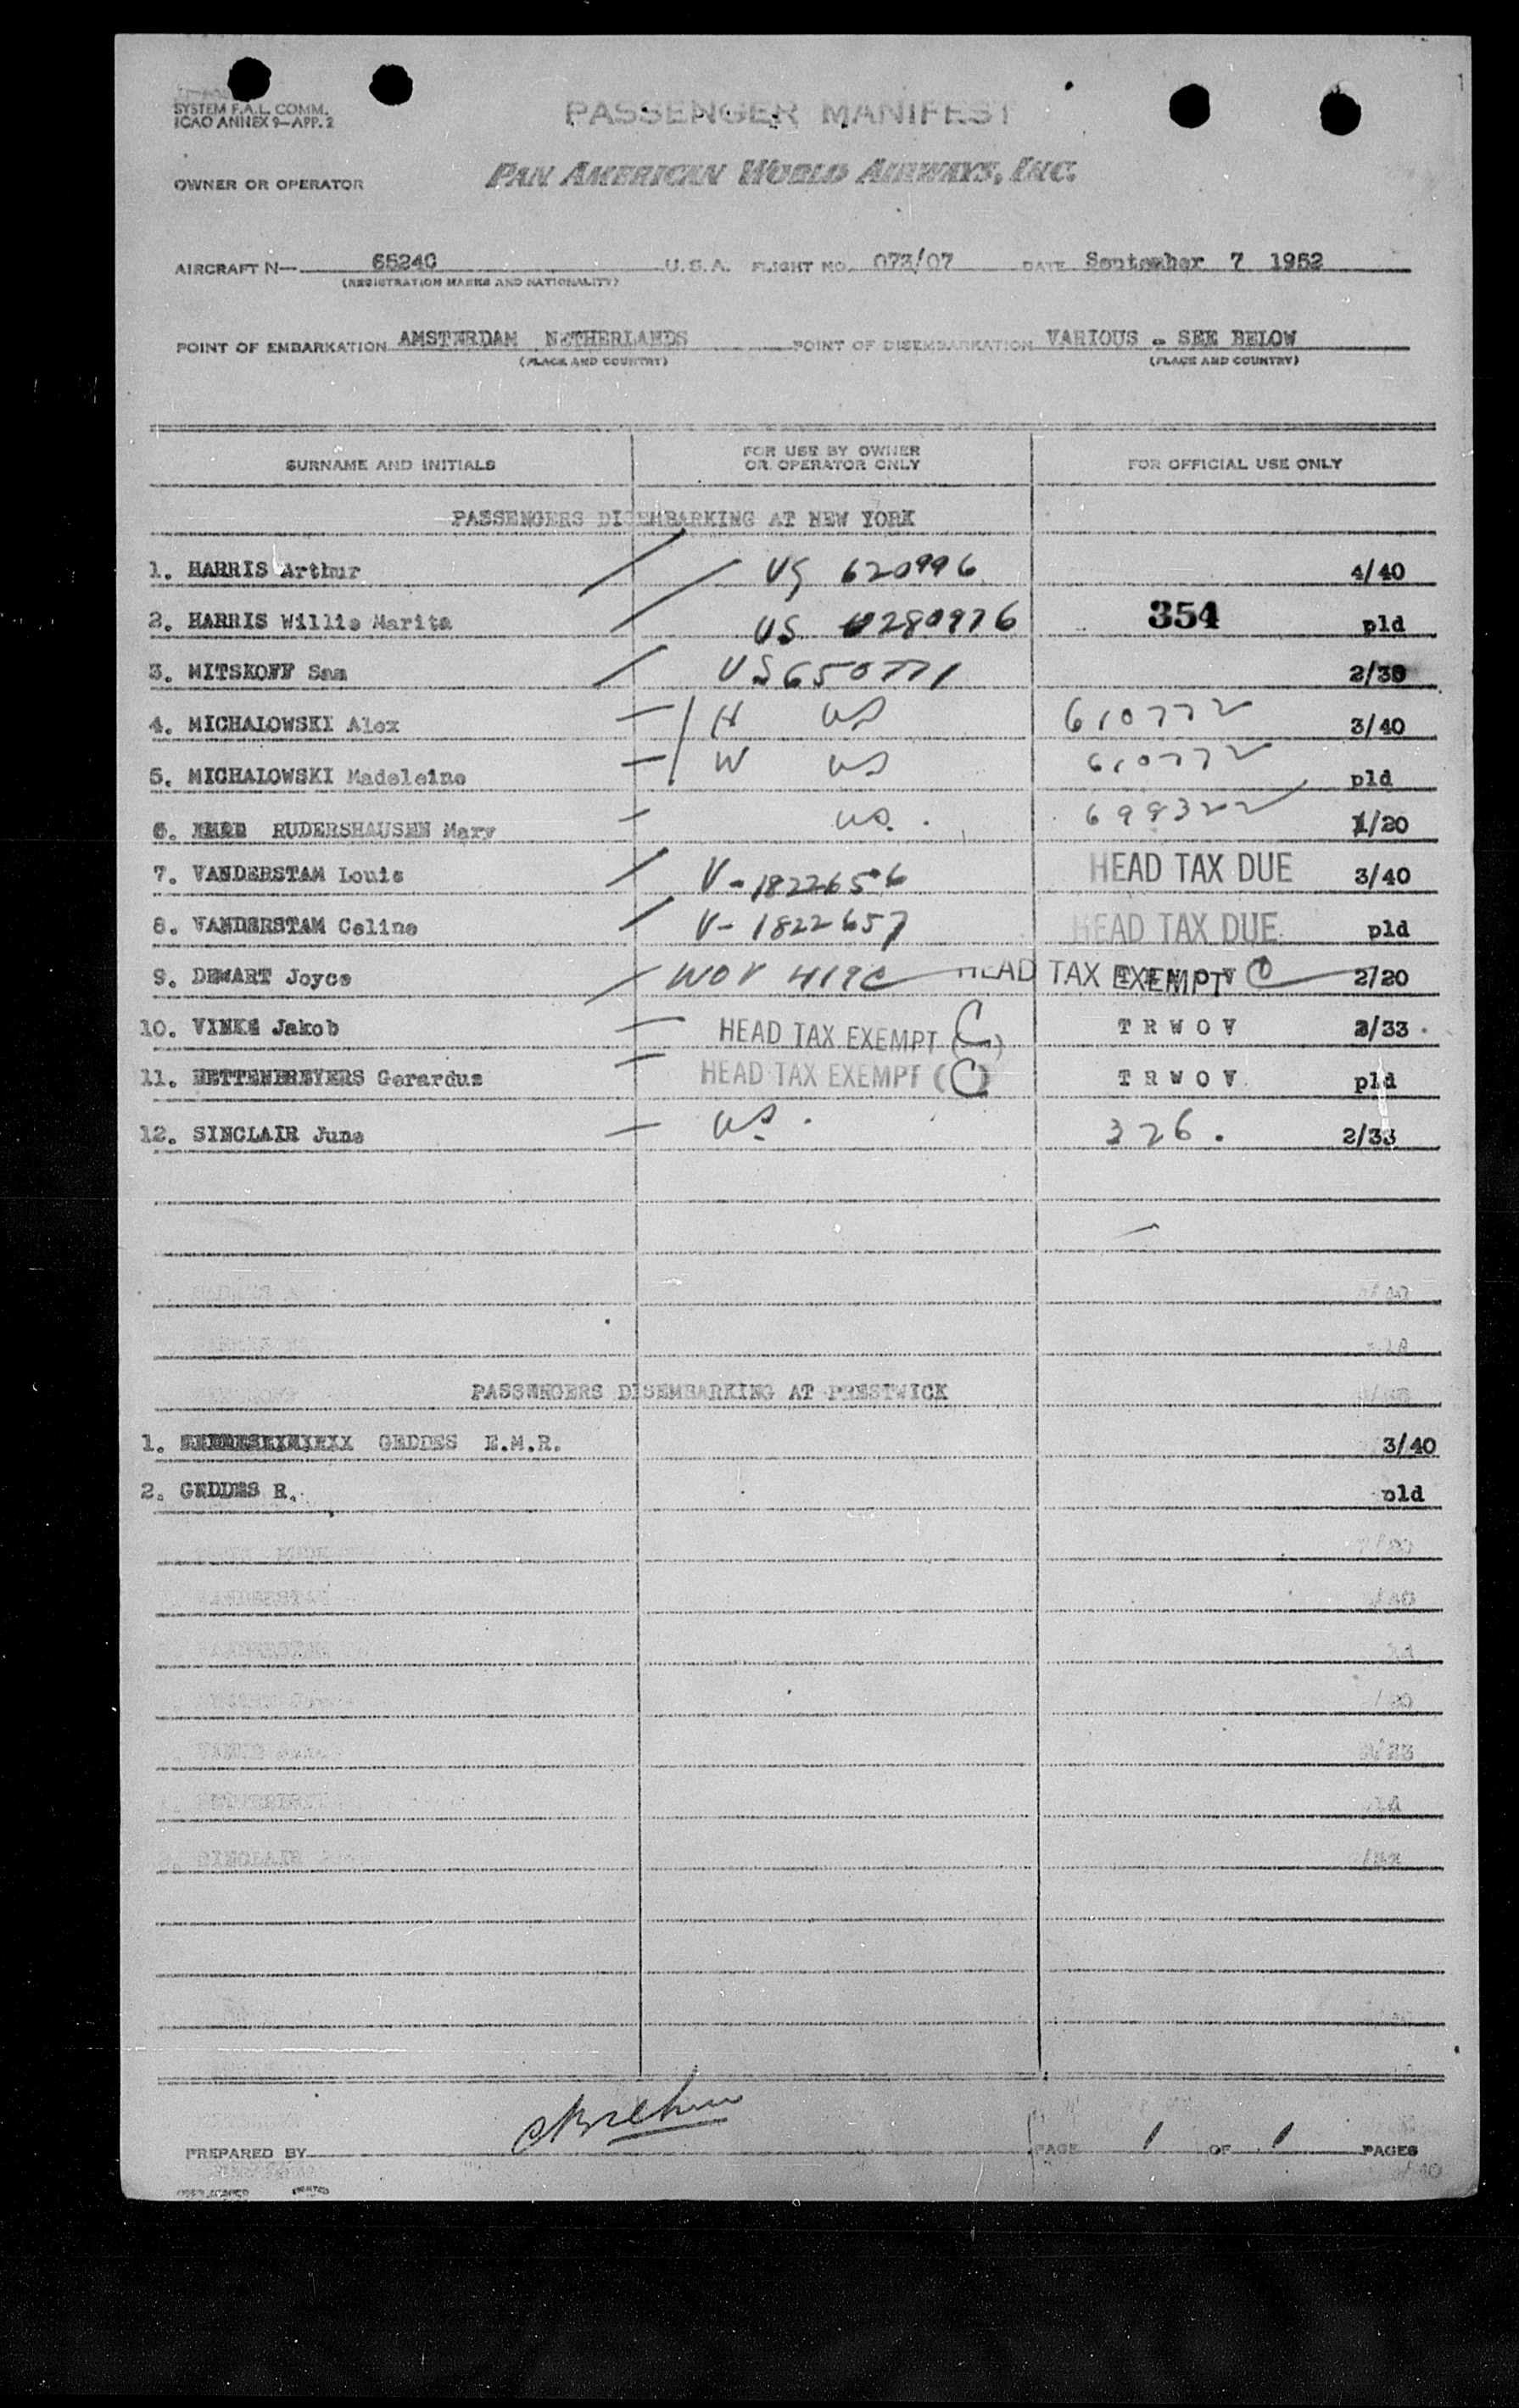 SYSTEM F.A.L. COMM.
ICAO ANNEX 9—APP. 2
PASSENGER MANIFEST
OWNER OR OPERATOR PAN AMERICAN WORLD AIRWAYS, INC.
AIRCRAFT N— 65240 U.S.A. FLIGHT NO. 073/07 DATE September 7 1952
(REGISTRATION MARKS AND NATIONALITY)
POINT OF EMBARKATION AMSTERDAM NETHERLANDS POINT OF DISEMBARKATION VARIOUS - SEE BELOW
(PLACE AND COUNTRY) (PLACE AND COUNTRY)
SURNAME AND INITIALS FOR USE BY OWNER OR OPERATOR ONLY FOR OFFICIAL USE ONLY
PASSENGERS DISEMBARKING AT NEW YORK
1. HARRIS Arthur US 620996 4/40
2. HARRIS Willie Marita US 280976 354 pld
3. MITSKOFF Sam US 650771 2/30
4. MICHALOWSKI Alex H US 610772 3/40
5. MICHALOWSKI Madeleine W US 610772 pld
6. RUDERSHAUSEN Mary US. 699322 1/20
7. VANDERSTAM Louis V-1822656 HEAD TAX DUE 3/40
8. VANDERSTAM Celine V-1822657 HEAD TAX DUE pld
9. DEWART Joyce WOV 419C HEAD TAX EXEMPT 2/20
10. VINKE Jakob HEAD TAX EXEMPT (C) TRWOV 2/33
11. Gerardus HEAD TAX EXEMPT (C) TRWOV pld
12. SINCLAIR June US. 326. 2/33
PASSENGERS DISEMBARKING AT PRESTWICK
1. GEDDES E.M.R. 3/40
2. GEDDES R. pld
PREPARED BY PAGE 1 OF 1 PAGES